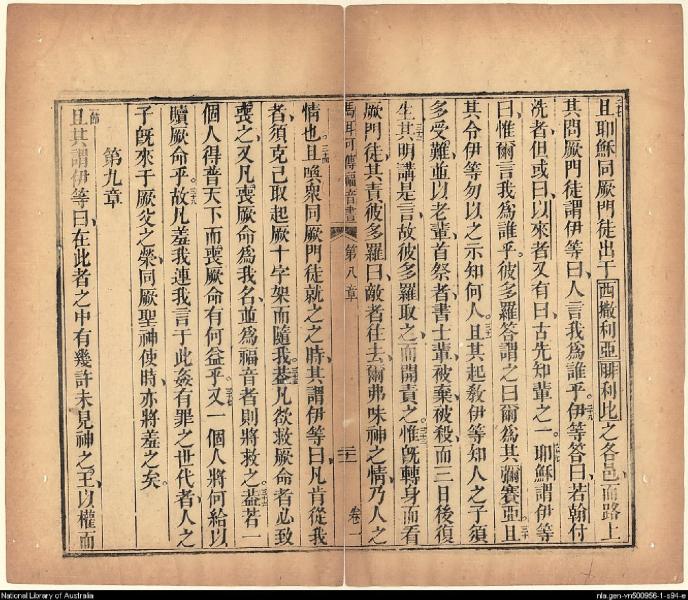 且耶穌同厥門徒出于西撒利亞腓利比之各邑而路上
其問厥門徒謂伊等曰人言我爲誰乎伊等答曰若翰付
洗者但或曰以來者又有曰古先知輩之一耶穌謂伊等
曰惟爾言我爲誰乎彼多羅答謂之曰爾爲其彌賽亞且
其令伊等勿以之示知何人且其起敎伊等知人之子須
多受難並以老輩首祭者書士輩被棄被殺而三日後復
生其明講是言故彼多羅取之而開責之惟旣轉身而看
厥門徒其責彼多羅曰敵者往去爾弗味神之情乃人之
馬耳可傳福音書 第八章 卷一
情也且喚衆同厥門徒就之之時其謂伊等曰凡肯從我
者須克己取起厥十字架而隨我蓋凡欲救厥命者必致
喪之又凡喪厥命爲我名並爲福音者則將救之蓋若一
個人得普天下而喪厥命有何益乎又一個人將何給以
贖厥命乎故凡羞我連我言于此姦有罪之世代者人之
子旣來于厥父之榮同厥聖神使時亦將羞之矣
第九章
且其謂伊等曰在此者之中有幾許未見神之王以權而
National Library of Australia
nla.gen-vn500956-1-s94-e